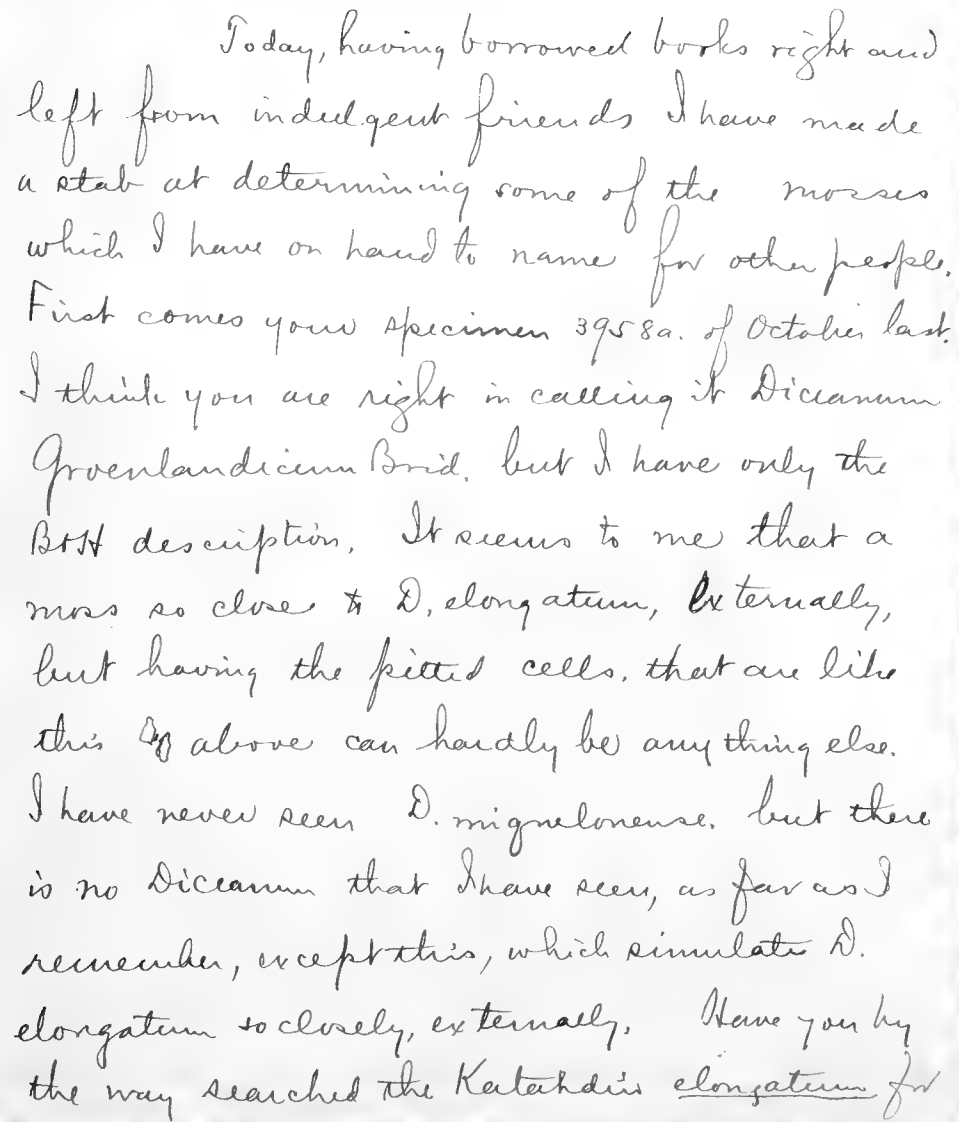 Today, having borrowed books right and
left from indulgent friends I have made
a stab at determining some of the mosses
which I have on hand to name for other people.
First comes your specimen 3958a. of October last.
I think you are right in calling it Dicranum
Groenlandicum Brid. but I have only the
B&H description. It seems to me that a
moss so close to D. elongatum, externally,
but having the pitted cells, that are like
this above can hardly be anything else.
I have never seen D. miquelonense. but there
is no Dicranum that I have seen, as far as I
remember, except this, which simulates D.
elongatum so closely, externally. Have you by
the way searched the Katahdin elongatum for